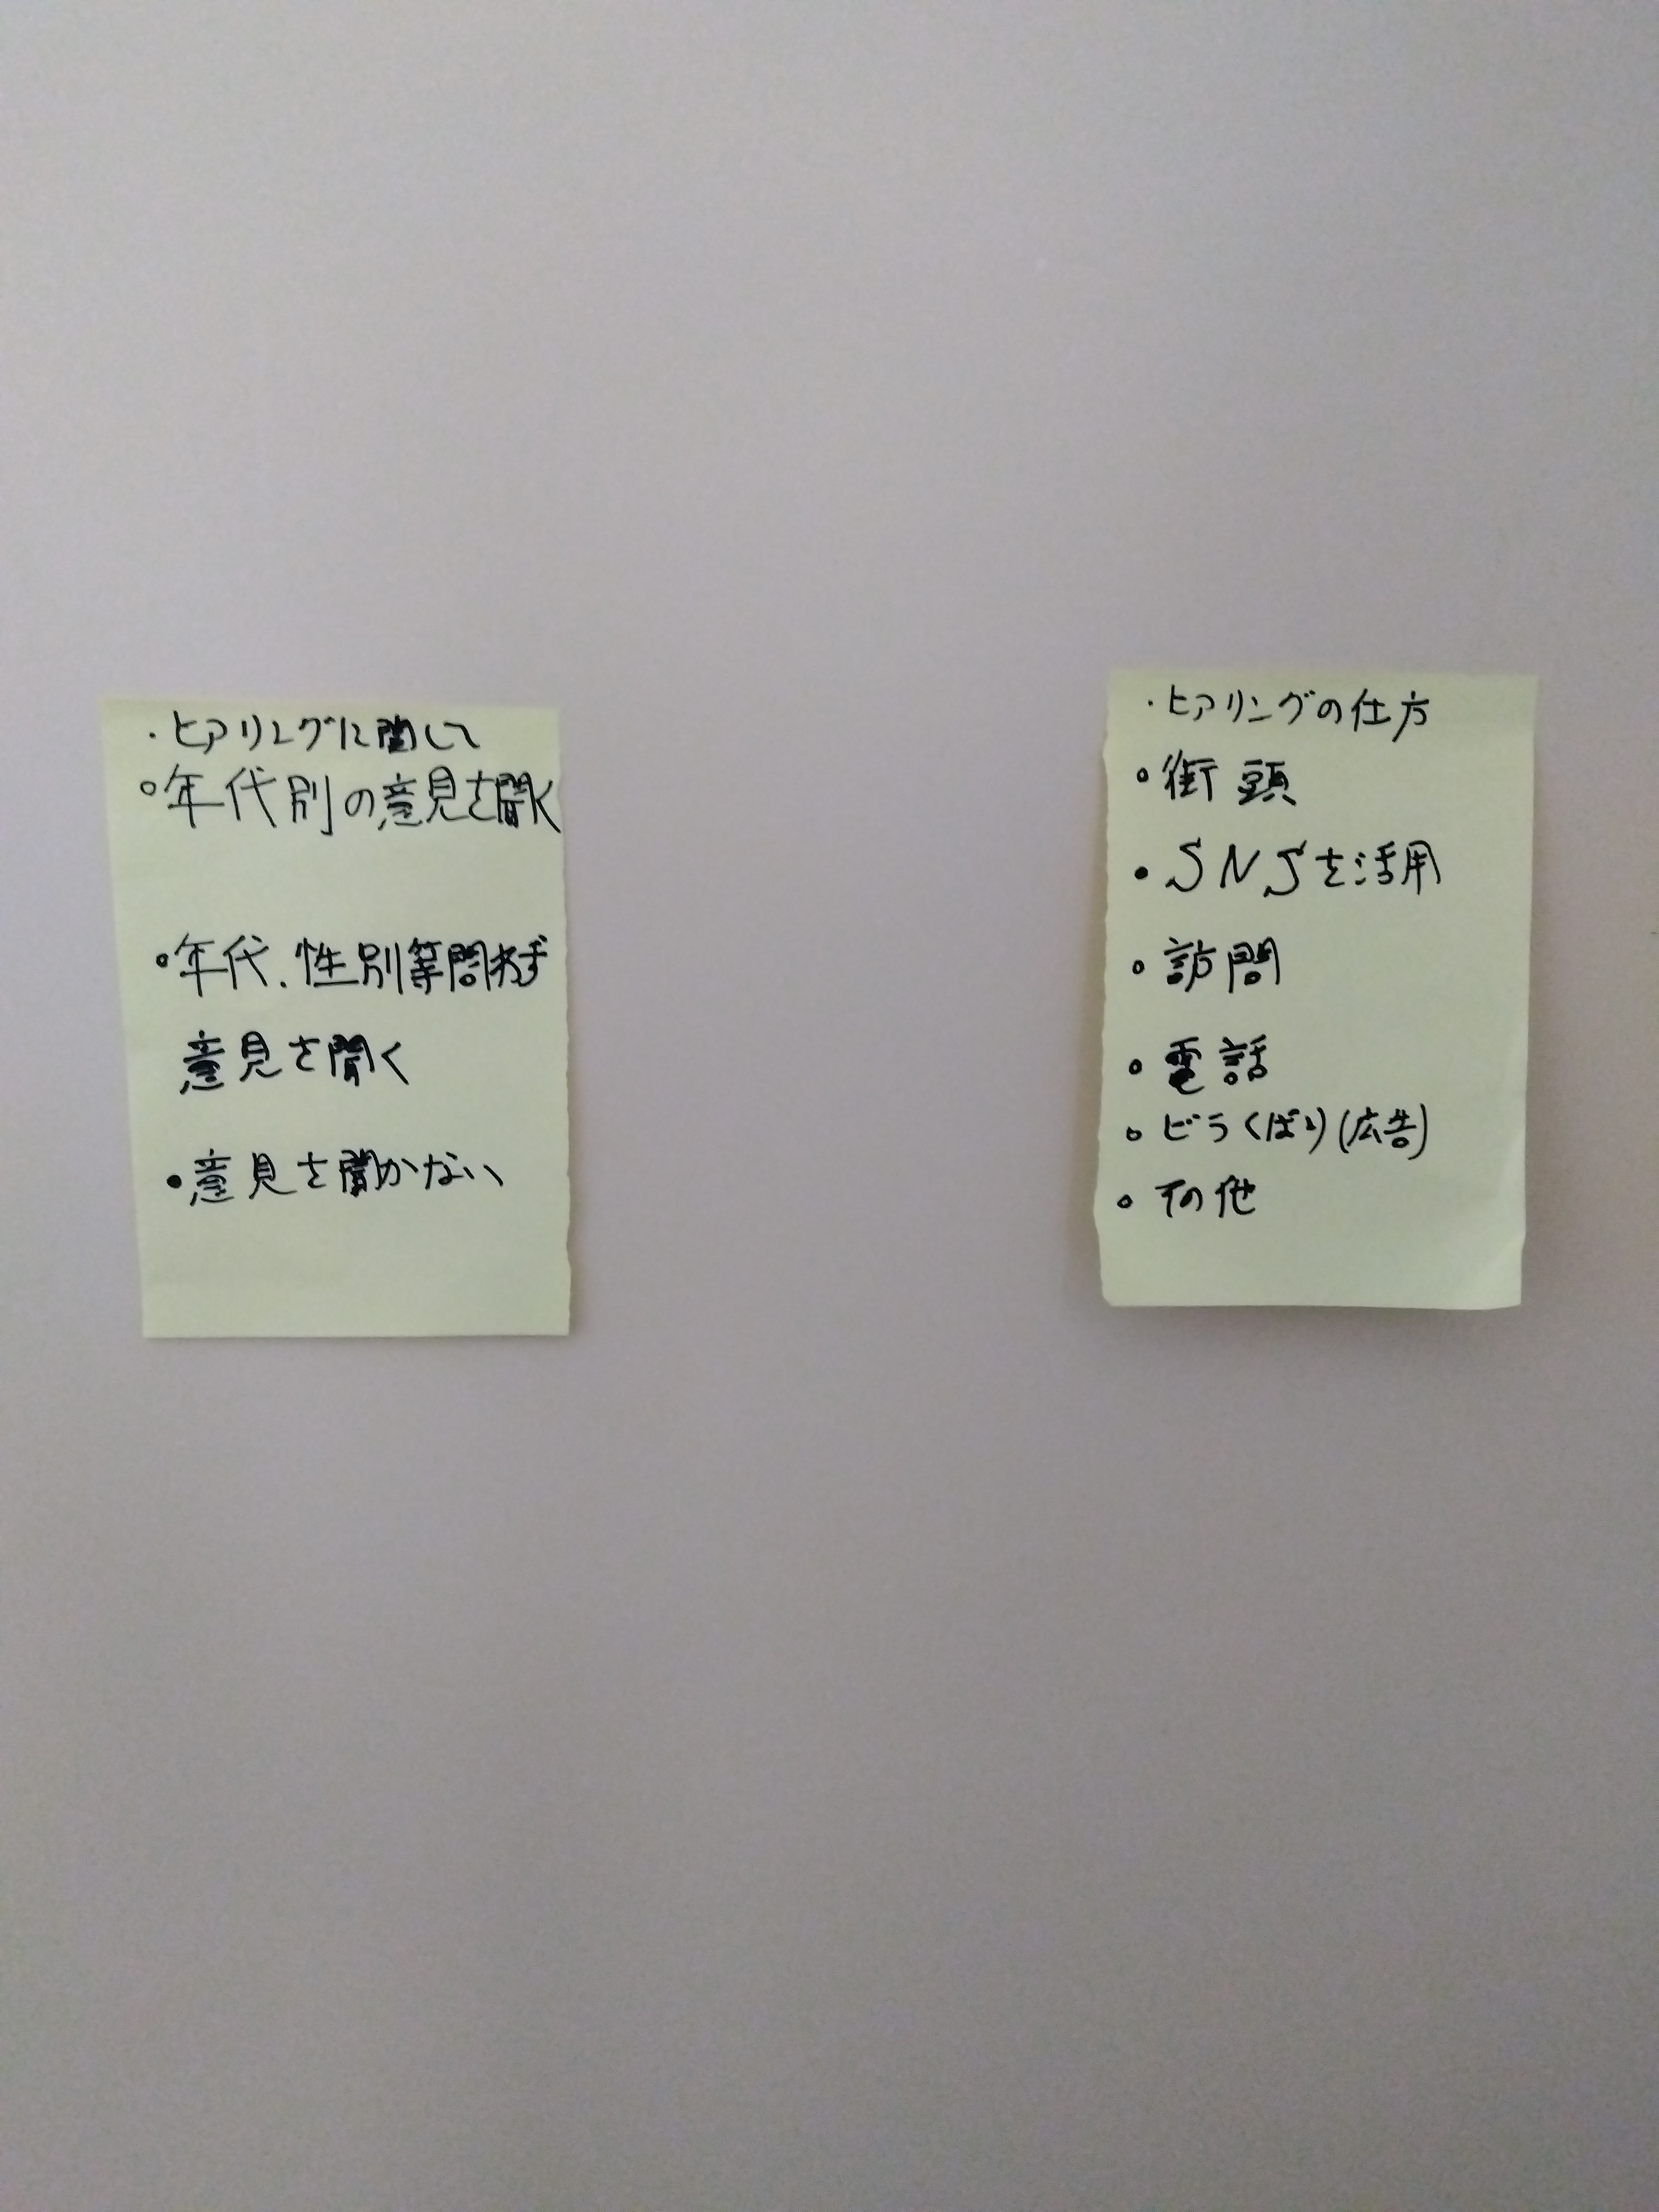 ・ヒアリングに関して
○年代別の意見を聞く
○年代、性別等問わず
意見を聞く
●意見を聞かない
・ヒアリングの仕方
○街頭
●SNSを活用
○訪問
○電話
○ビラくばり(広告)
○その他